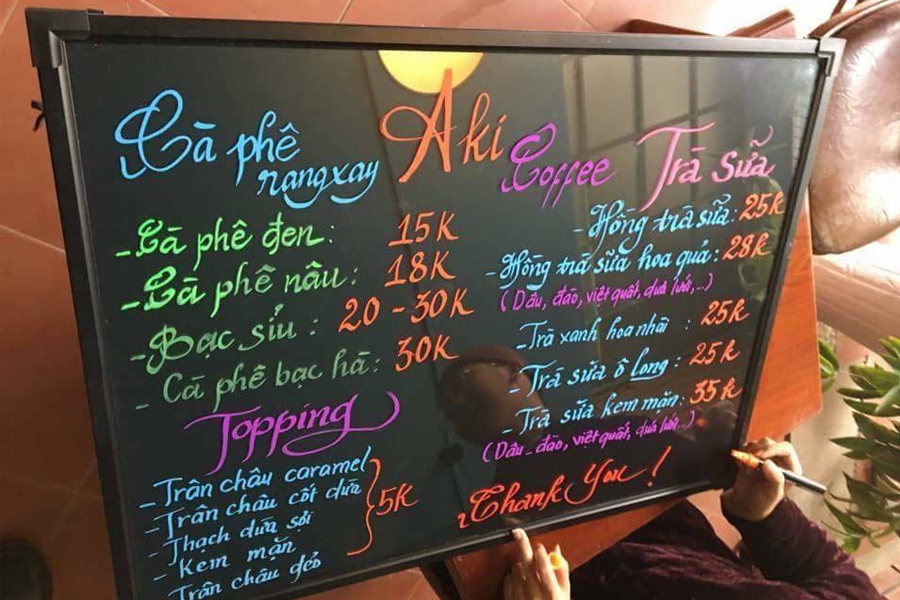 Aki
Coffee
Cà phê
rang xay
- Cà phê đen: 15K
- Cà phê nâu: 18K
- Bạc sỉu: 20 - 30K
- Cà phê bạc hà: 30K
Topping
- Trân châu caramel
- Trân châu cốt dừa
- Thạch dừa sỏi
- Kem mặn
- Trân châu dẻo
5K
Trà sữa
- Hồng trà sữa: 25K
- Hồng trà sữa hoa quả: 28K
(Dâu, đào, việt quất, dưa lưới,...)
- Trà xanh hoa nhài : 25K
- Trà sữa ô long: 25K
- Trà sữa kem mặn: 35K
(Dâu - đào, việt quất, dưa lưới...)
Thank You!